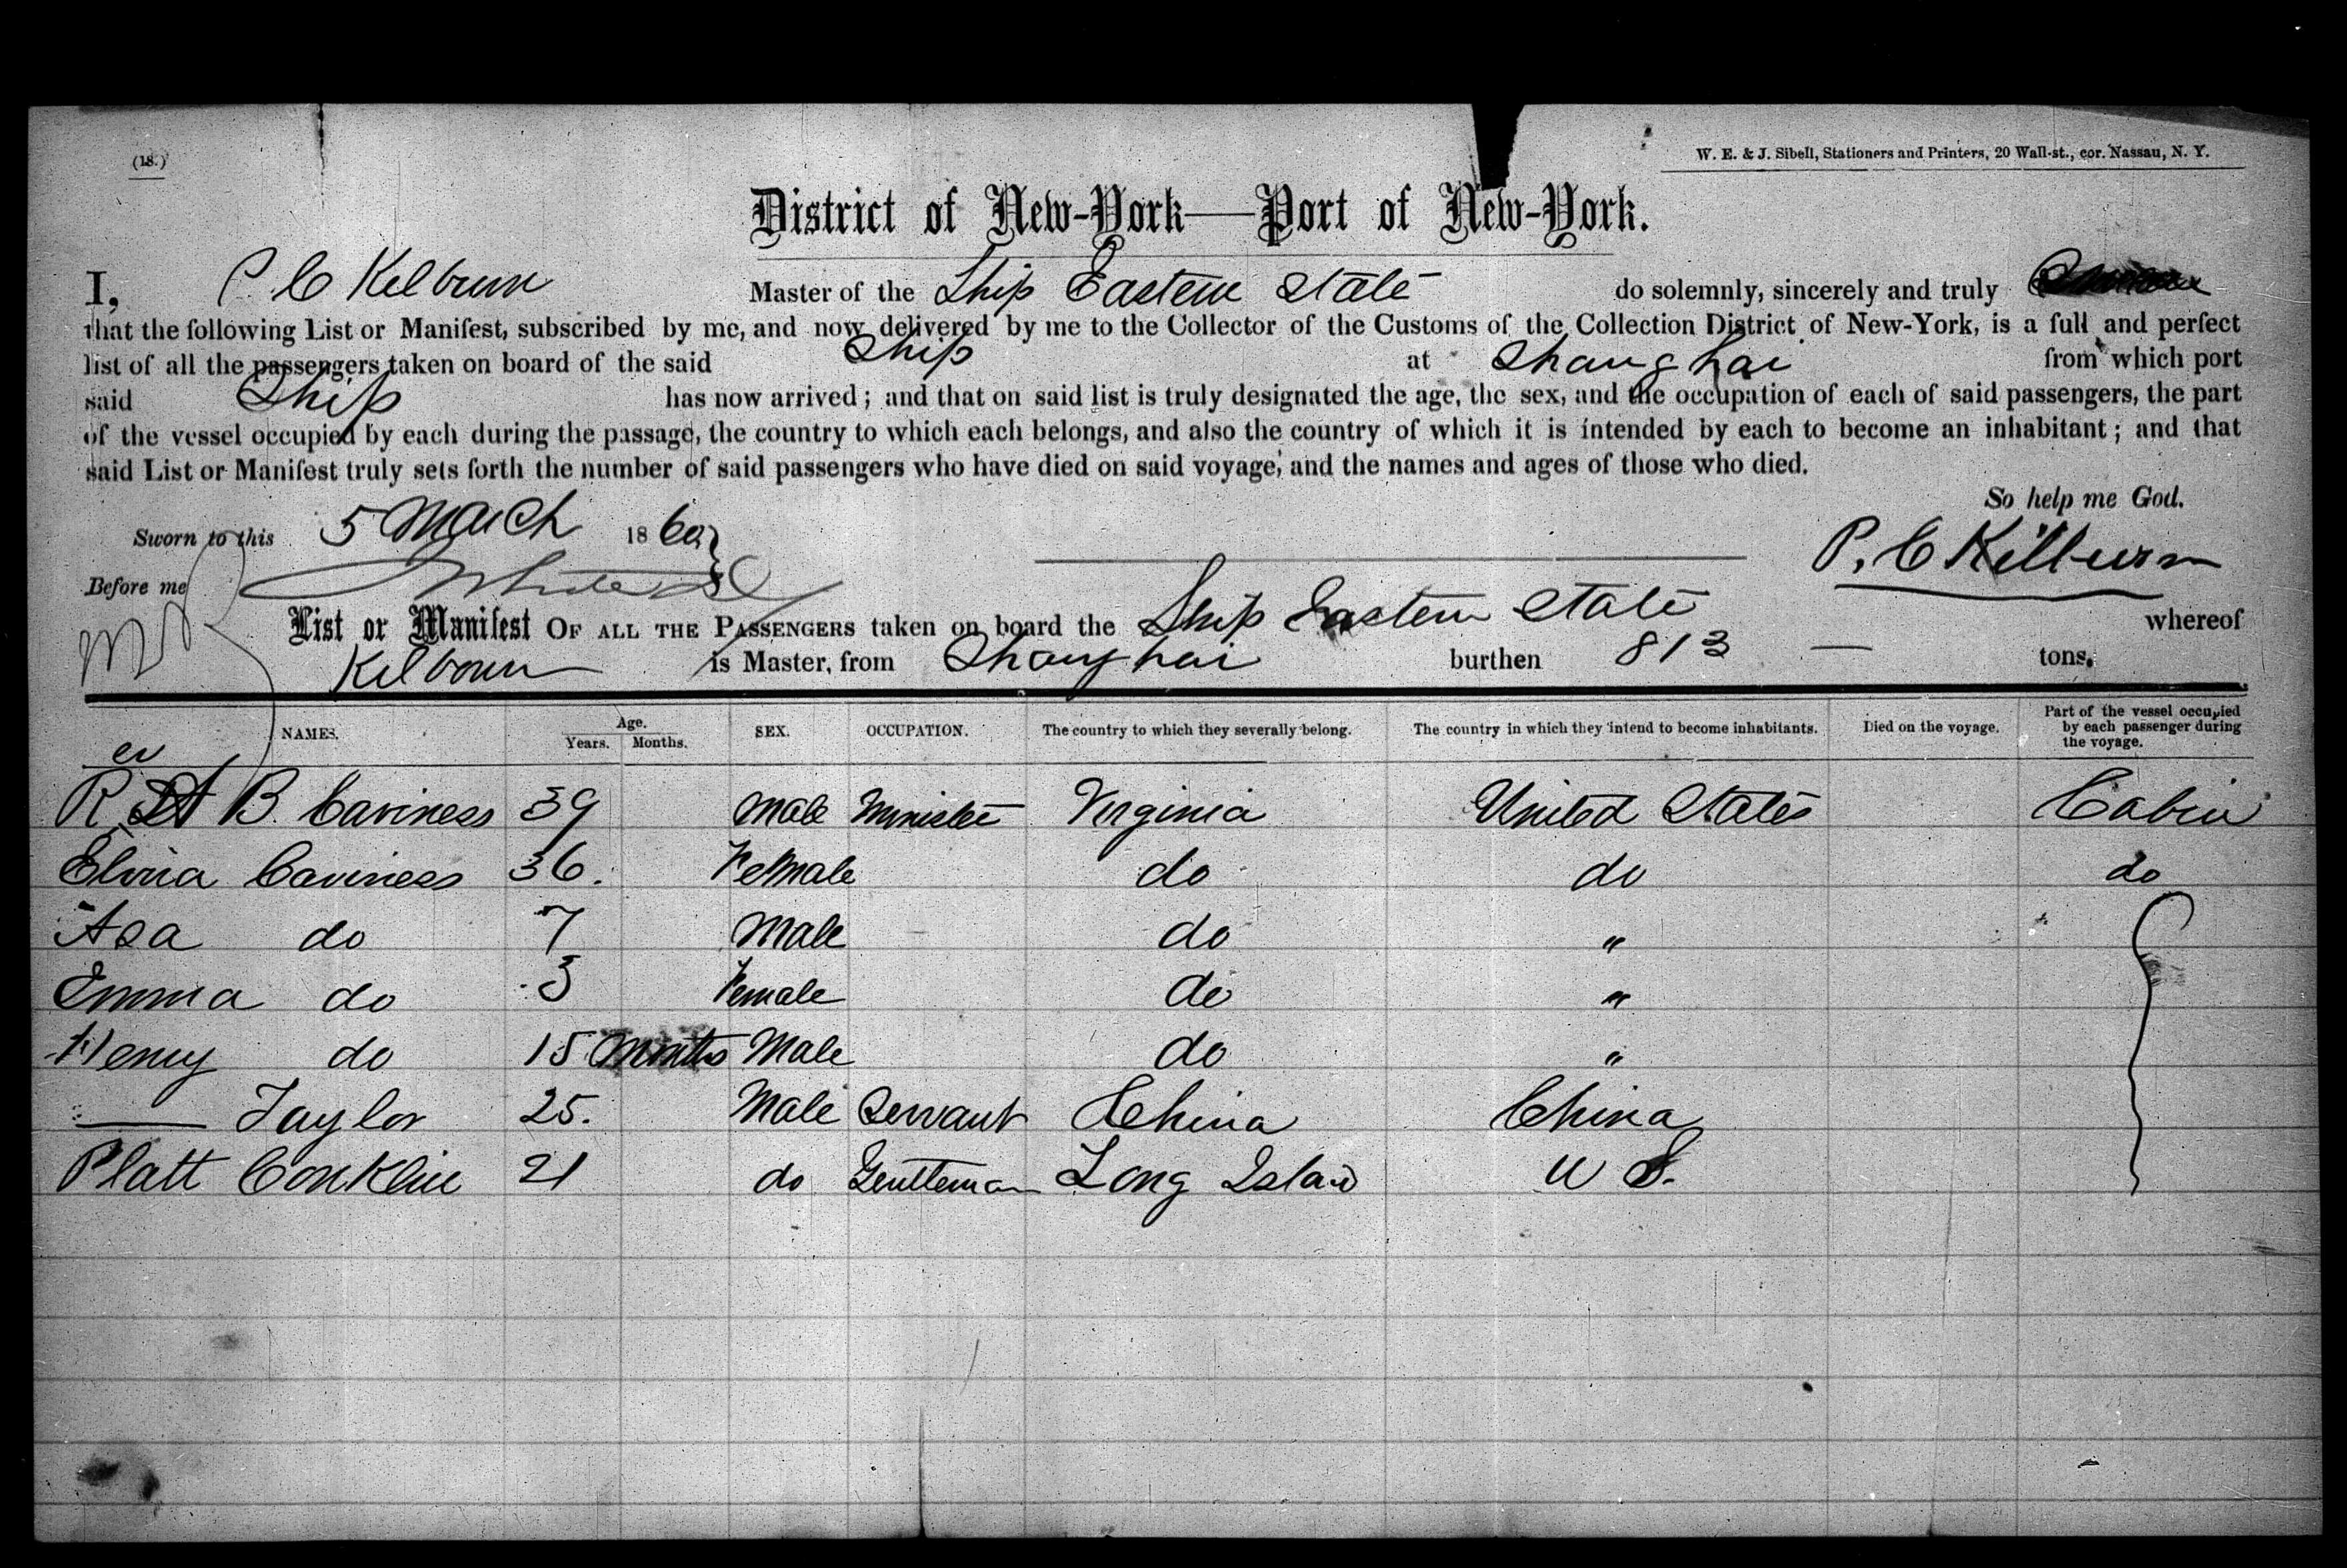 (18.)
W. E. & J. Sibell, Stationers and Printers, 20 Wall-st., cor. Nassau, N. Y.
District of New-York—Port of New-York.
I, P C Kelburn Master of the Ship Eastern State do solemnly, sincerely and truly
that the following List or Manifest, subscribed by me, and now delivered by me to the Collector of the Customs of the Collection District of New-York, is a full and perfect
list of all the passengers taken on board of the said Ship at Shanghai from which port
said Ship has now arrived; and that on said list is truly designated the age, the sex, and the occupation of each of said passengers, the part
of the vessel occupied by each during the passage, the country to which each belongs, and also the country of which it is intended by each to become an inhabitant; and that
said List or Manifest truly sets forth the number of said passengers who have died on said voyage, and the names and ages of those who died.
So help me God.
Sworn to this 5 March 1860
P. C Kilburn
Before me
List or Manifest OF ALL THE PASSENGERS taken on board the Ship Eastern State whereof
Kelbourn is Master, from Shanghai burthen 813 — tons.
NAMES. Age. Years. Months. SEX. OCCUPATION. The country to which they severally belong. The country in which they intend to become inhabitants. Died on the voyage. Part of the vessel occupied by each passenger during the voyage.
Rev A B. Caviness 39 Male Minister Virginia United States Cabin
Elvira Caviness 36. Female do do do
Asa do 7 Male do "
Emma do 3 Female do "
Henry do 15 months Male do "
— Taylor 25. Male Servant China China
Platt Conklin 21 do Gentleman Long Island U S.